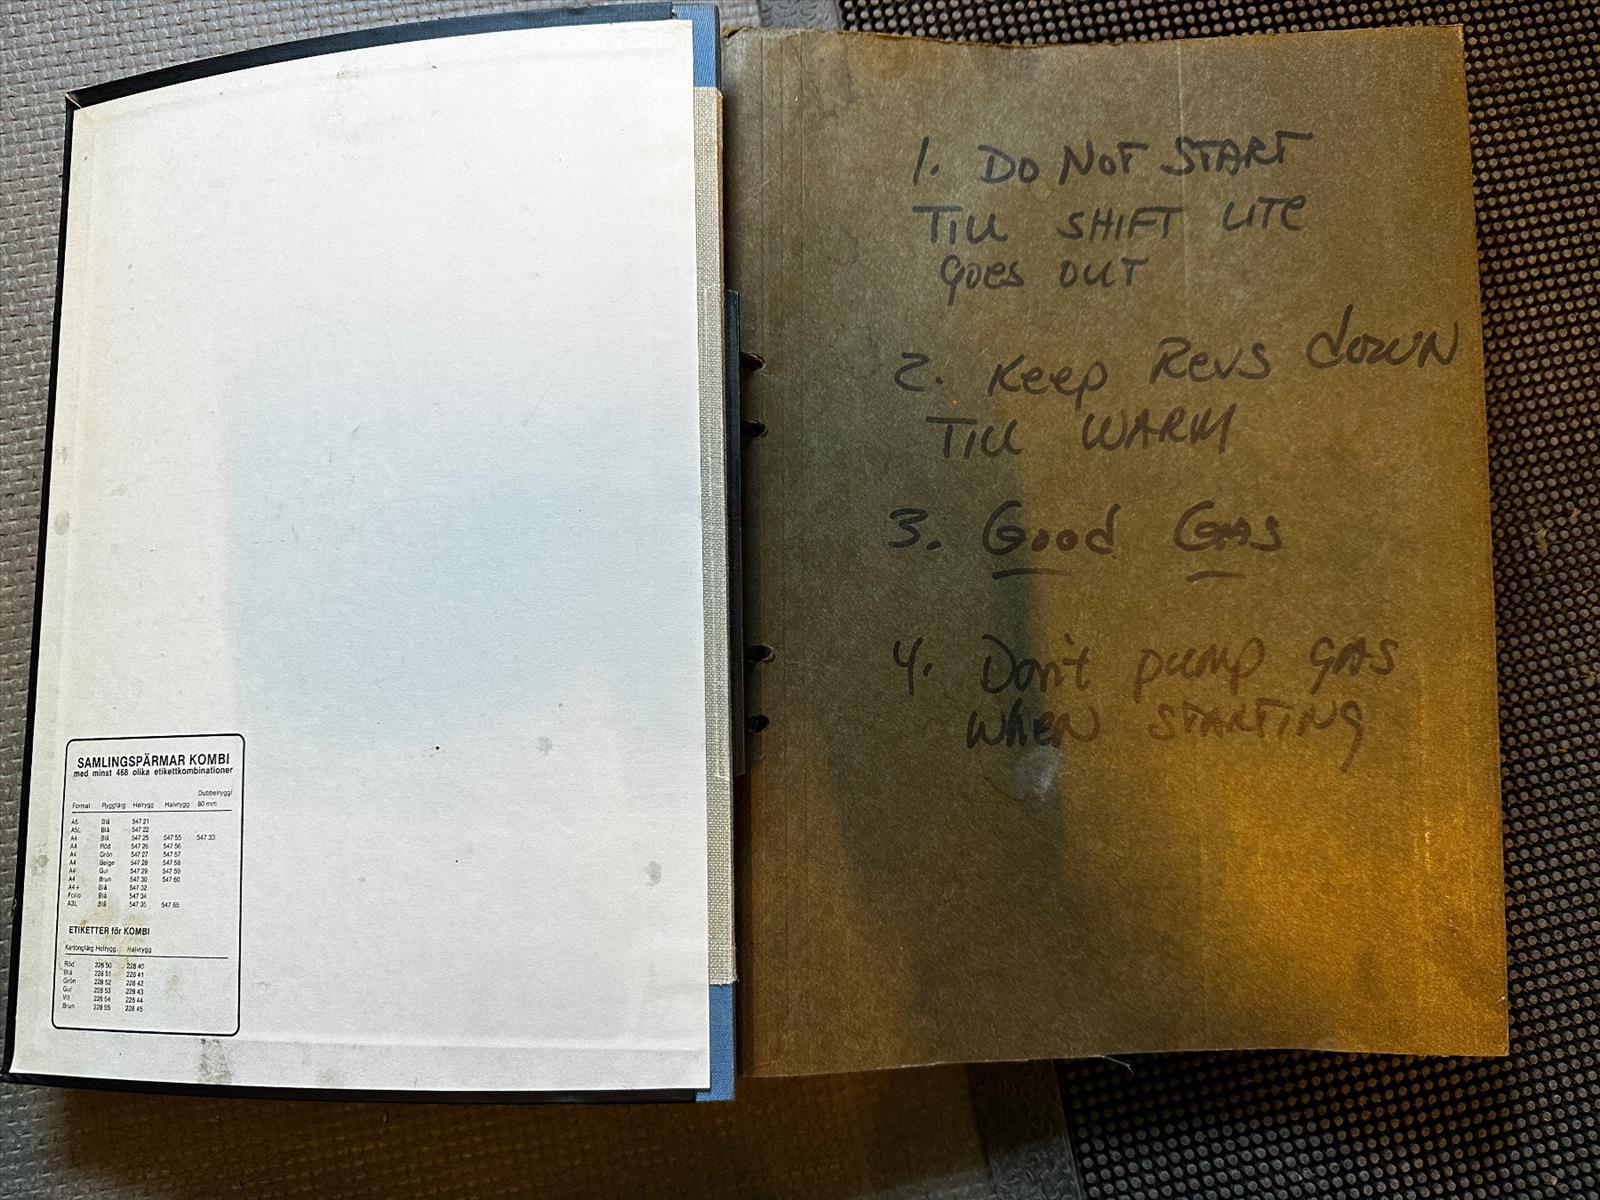 SAMLINGSPÄRMAR KOMBI
med minst 468 olika etikettkombinationer
Dubbelrygg/
Format Ryggfärg Helrygg Halvrygg 80 mm
A5 Blå 547 21
A5L Blå 547 22
A4 Blå 547 25 547 55 547 33
A4 Röd 547 26 547 56
A4 Grön 547 27 547 57
A4 Beige 547 28 547 58
A4 Gul 547 29 547 59
A4 Brun 547 30 547 60
A4+ Blå 547 32
Folio Blå 547 34
A3L Blå 547 35 547 65
ETIKETTER för KOMBI
Kartongfärg Helrygg Halvrygg
Röd 228 50 228 40
Blå 228 51 228 41
Grön 228 52 228 42
Gul 228 53 228 43
Vit 228 54 228 44
Brun 228 55 228 45
1. DO NOT START
TILL SHIFT LITE
goes OUT
2. Keep Revs down
TILL WARM
3. Good GAS
4. Don't pump gAS
WheN STARTINg